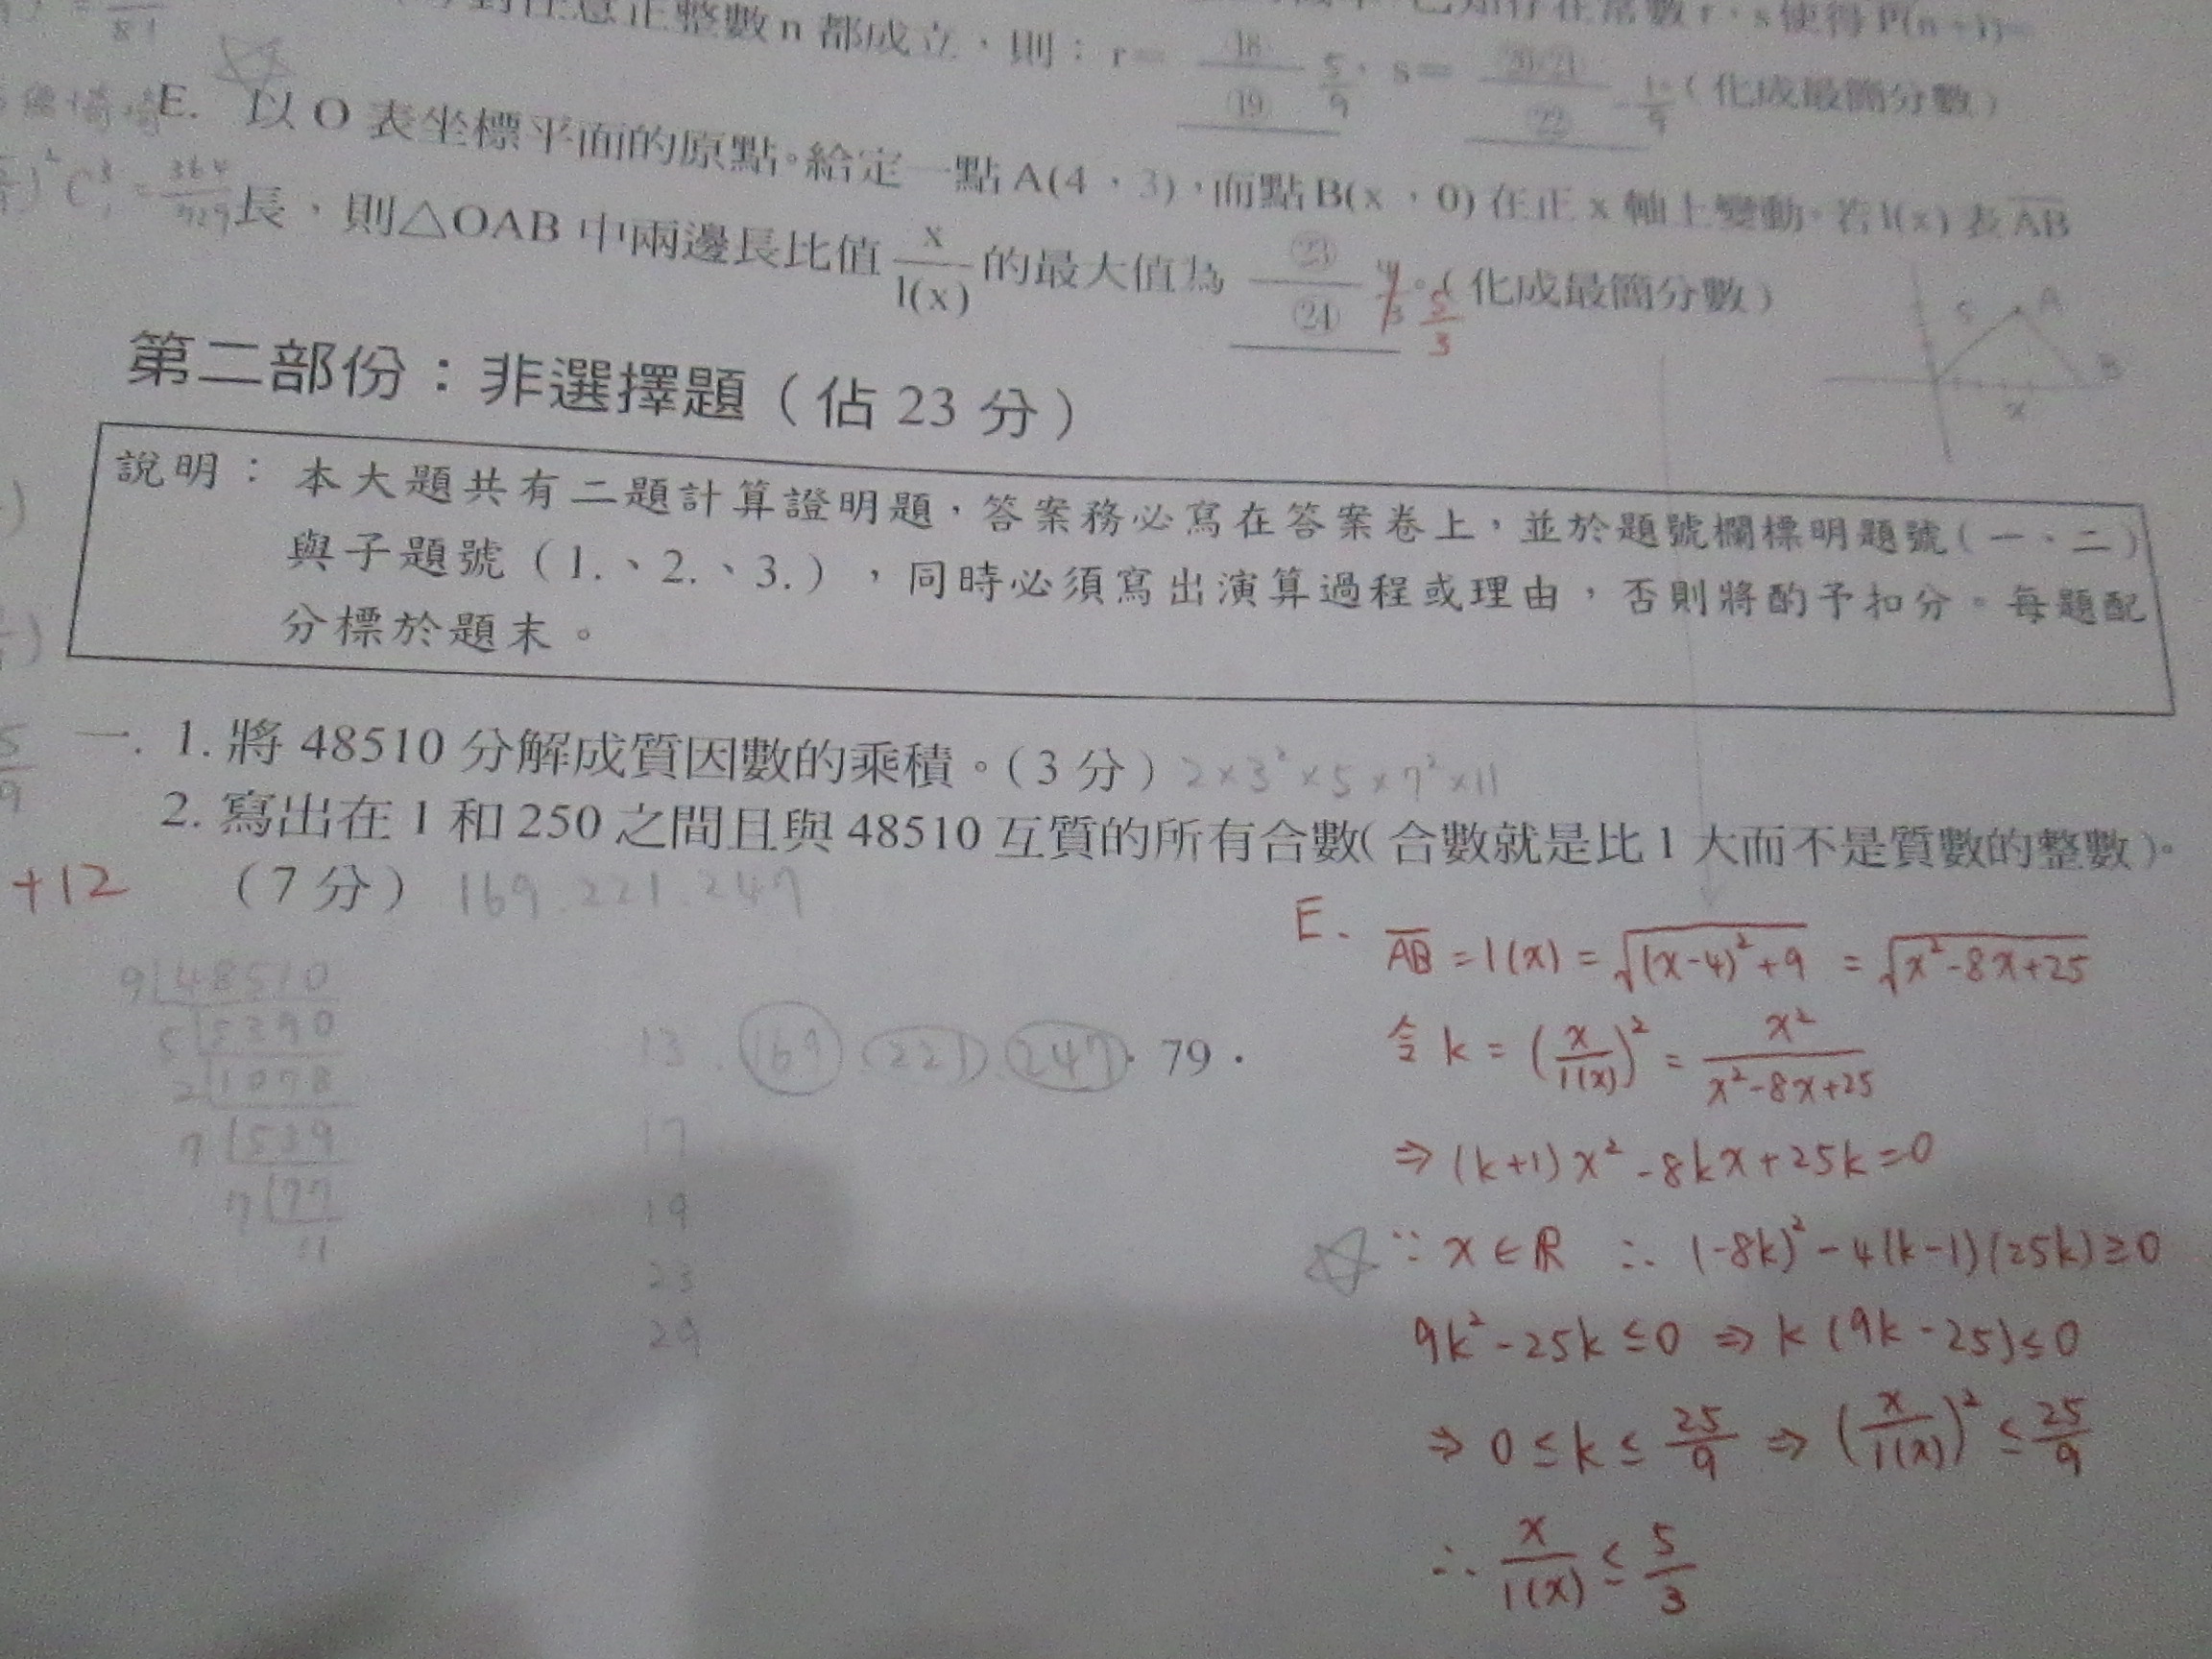 81
意正整數 n 都成立，則：r＝ (18) 5 ，s＝ (20)(21) (化成最簡分數)
(19) 9 (22) 9
E. 以 O 表坐標平面的原點。給定一點 A(4，3)，而點 B(x，0) 在正 x 軸上變動。若 l(x) 表 AB
C = 364/729
長，則△OAB 中兩邊長比值 x/l(x) 的最大值為 (23)/(24) 4/3 。5/3 (化成最簡分數)
5 A
B
x
第二部份：非選擇題（佔 23 分）
說明：本大題共有二題計算證明題，答案務必寫在答案卷上，並於題號欄標明題號（一、二）
與子題號（1.、2.、3.），同時必須寫出演算過程或理由，否則將酌予扣分。每題配
分標於題末。
5/9
一. 1. 將 48510 分解成質因數的乘積。(3 分) 2×3²×5×7²×11
2. 寫出在 1 和 250 之間且與 48510 互質的所有合數(合數就是比 1 大而不是質數的整數)。
+12 （7 分） 169.221.247
9 48510
5 5390
2 1078
7 539
7 77
11
13 . 169 . 221 . 247 · 79 ·
17
19
23
29
E. AB = l(x) = √((x-4)²+9) = √(x²-8x+25)
令 k = (x/l(x))² = x²/(x²-8x+25)
⇒ (k+1)x² - 8kx + 25k = 0
∵ x ∈ R ∴ (-8k)² - 4(k-1)(25k) ≥ 0
9k² - 25k ≤ 0 ⇒ k(9k-25) ≤ 0
⇒ 0 ≤ k ≤ 25/9 ⇒ (x/l(x))² ≤ 25/9
∴ x/l(x) ≤ 5/3